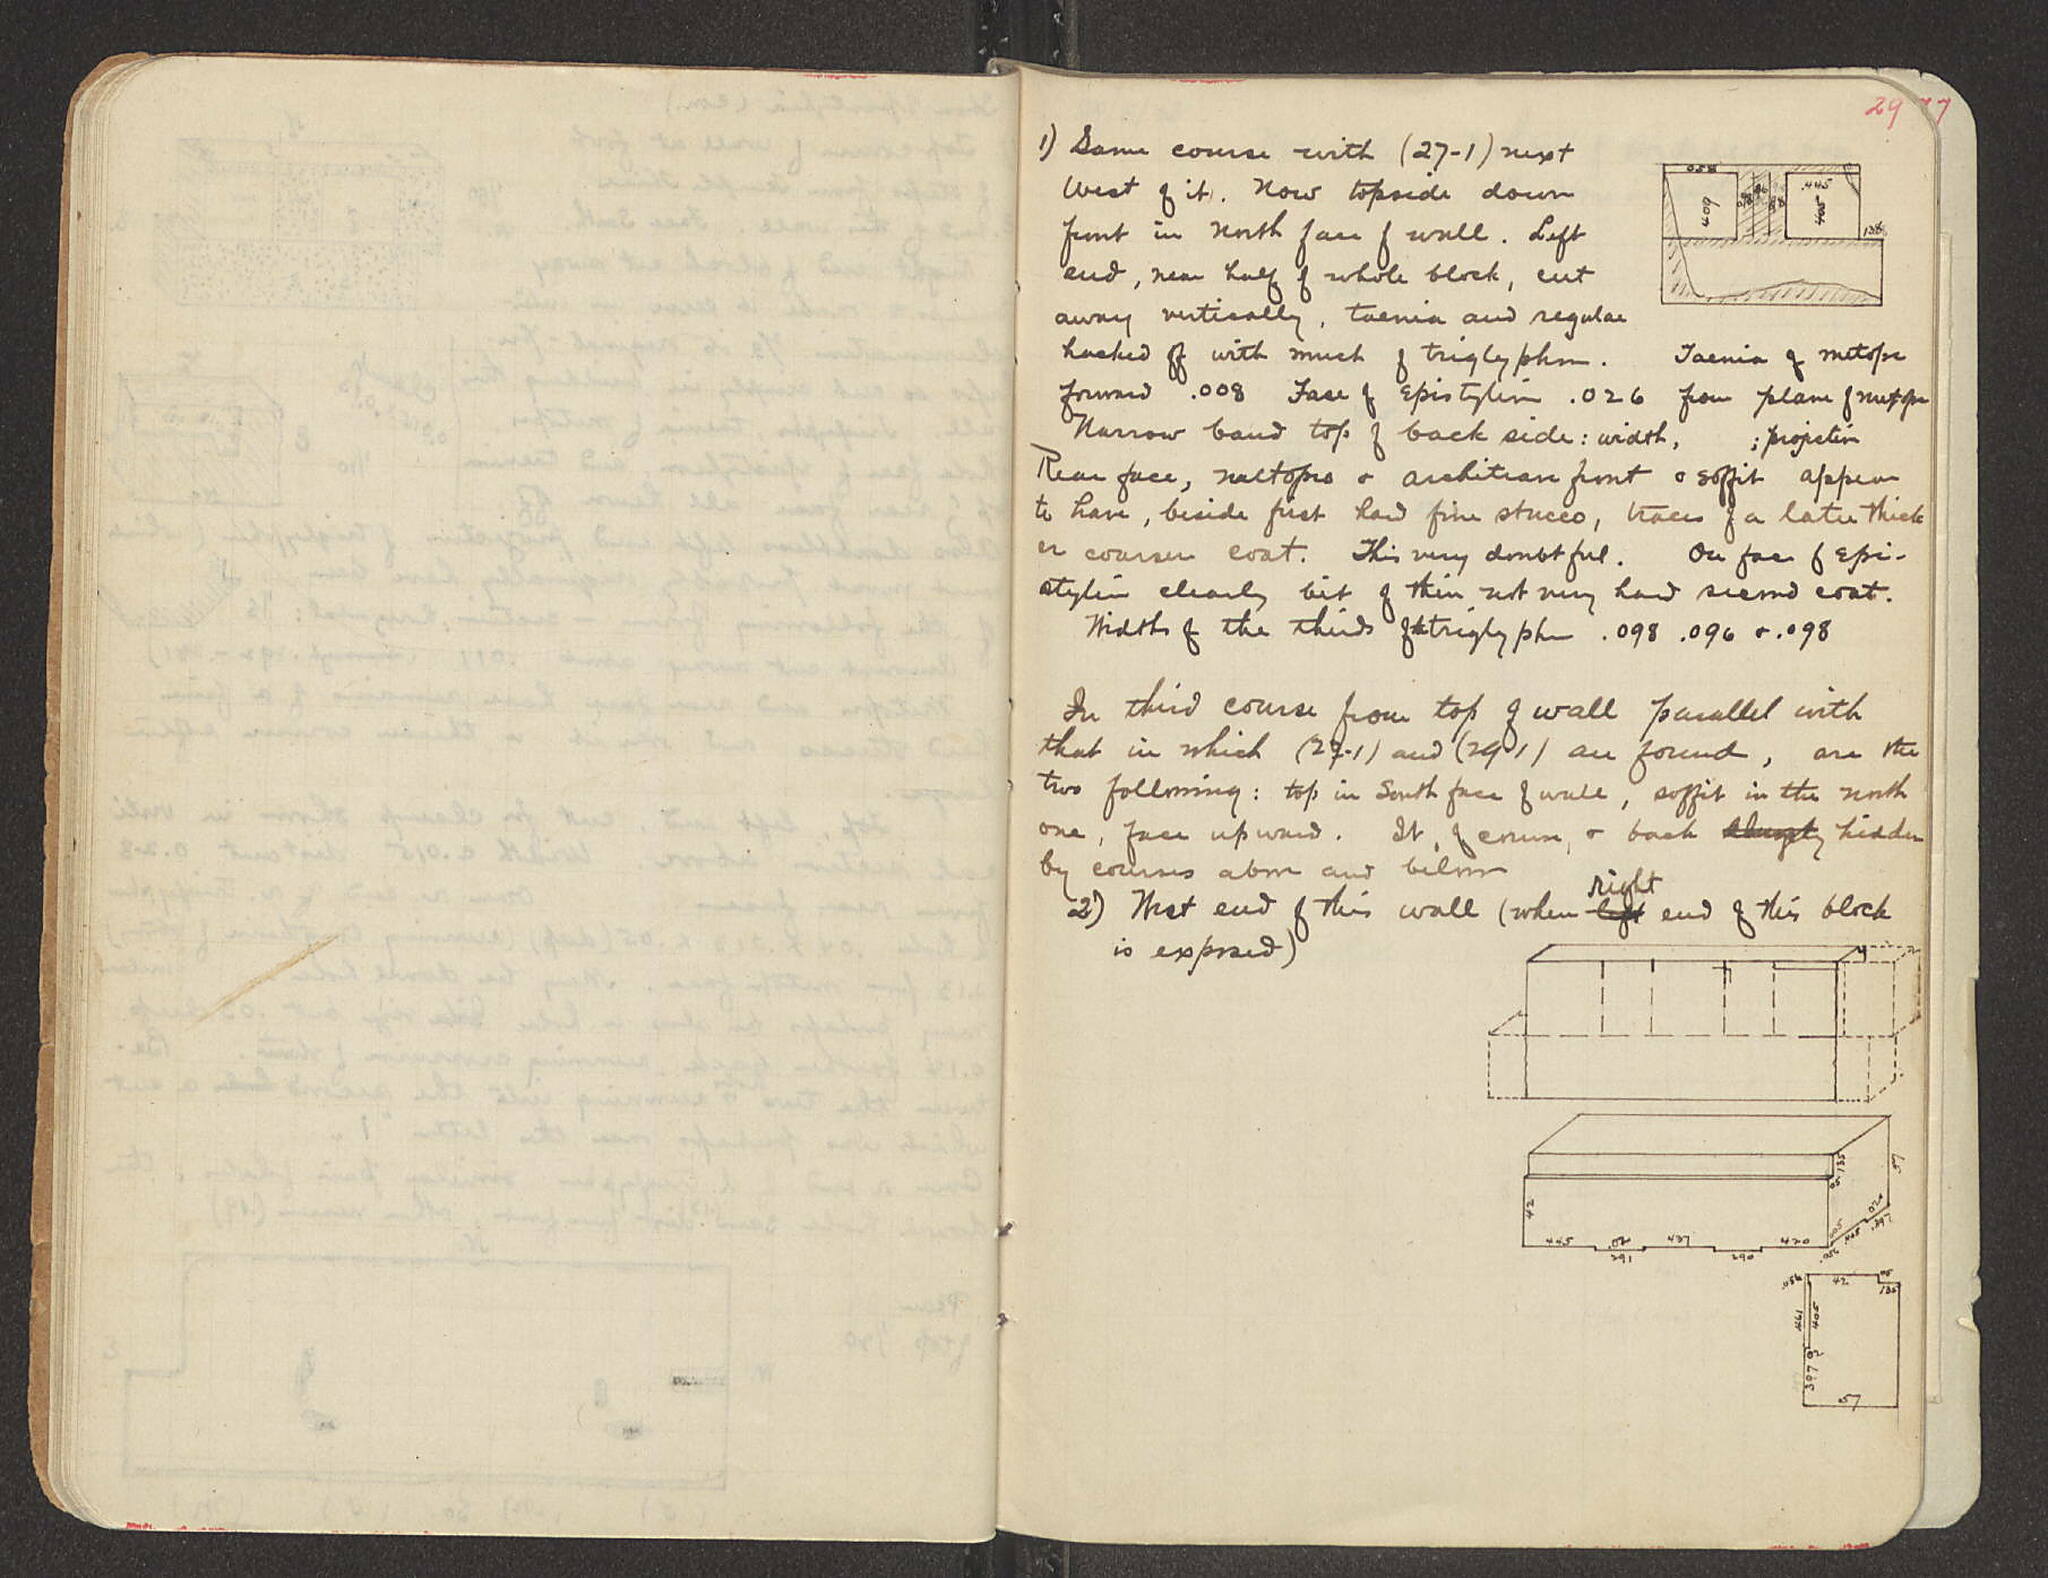 29
77
1) Same course with (27-1) next
West of it. Now topside down
front in North face of wall. Left
end, near half of whole block, cut
away vertically, taenia and regulae
hacked off with much of triglyphon. Taenia of metope
forward .008 Face of Epistylion .026 from plane of metope
Narrow band top of back side: width, ; projection
Rear face, metopes & architrave front & soffit appear
to have, beside first hard fine stucco, traces of a later thick
er coarser coat. This very doubtful. On face of Epi-
stylion clearly bit of thin not very hard second coat.
Widths of the thirds of triglyphon .098 .096 & .098
In third course from top of wall parallel with
that in which (27-1) and (29-1) are found, are the
two following: top in South face of wall, soffit in the north
one, face upward. It, of course, & back hidden
by courses above and below
2) West end of this wall (when left right end of this block
is exposed)
.058
.409
.445
.405
.138
.42
.135
.05
.57
.445
.02
.291
.437
.290
.420
.056
.405
.02
.397
.056
.42
.05
.135
.461
.405
.397
.57